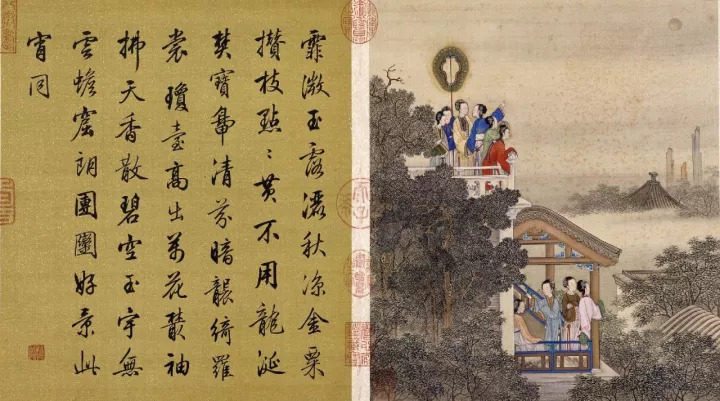 霏微玉露灑秋凉金粟
攢枝點〻黄不用龍涎
焚寶鼎清芬暗襲綺羅
裳瓊臺高出萬花叢袖
拂天香散碧空玉宇無
雲蟾窟朗團圞好景此
宵同